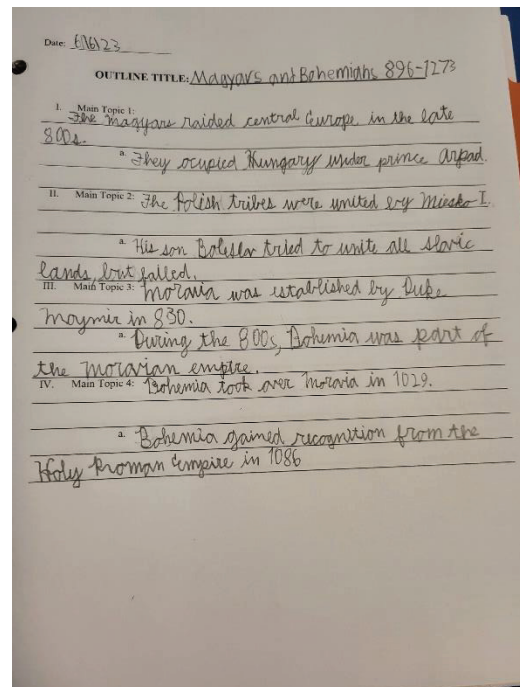 Date: 6/16/23
OUTLINE TITLE: Magyars and Bohemians 896-1273
I. Main Topic 1:
The magyars raided central Europe in the late
800s.
a. They ocupied Hungary under prince Arpad.
II. Main Topic 2: The Polish tribes were united by Miesko I.
a. His son Boleslav tried to unite all slavic
lands, but failed.
III. Main Topic 3: Moravia was established by Duke
Moymir in 830.
a. During the 800s, Bohemia was part of
the Moravian empire.
IV. Main Topic 4: Bohemia took over Moravia in 1029.
a. Bohemia gained recognition from the
Holy Roman Empire in 1086